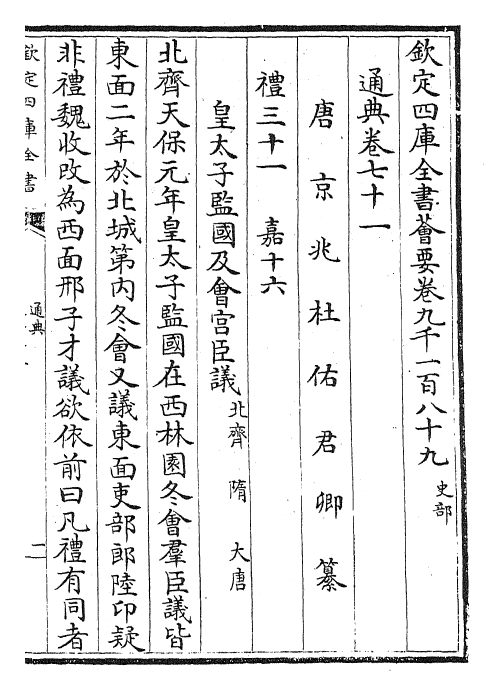 欽定四庫全書薈要卷九千一百八十九 史部
通典卷七十一
唐京兆杜佑君卿纂
禮三十一 嘉十六
皇太子監國及會宫臣議 北齊 隋 大唐
北齊天保元年皇太子監國在西林園冬會羣臣議皆
東面二年於北城第内冬會又議東面吏部郎陸卬疑
非禮魏收改為西面邢子才議欲依前曰凡禮有同者
欽定四庫全書
通典
二